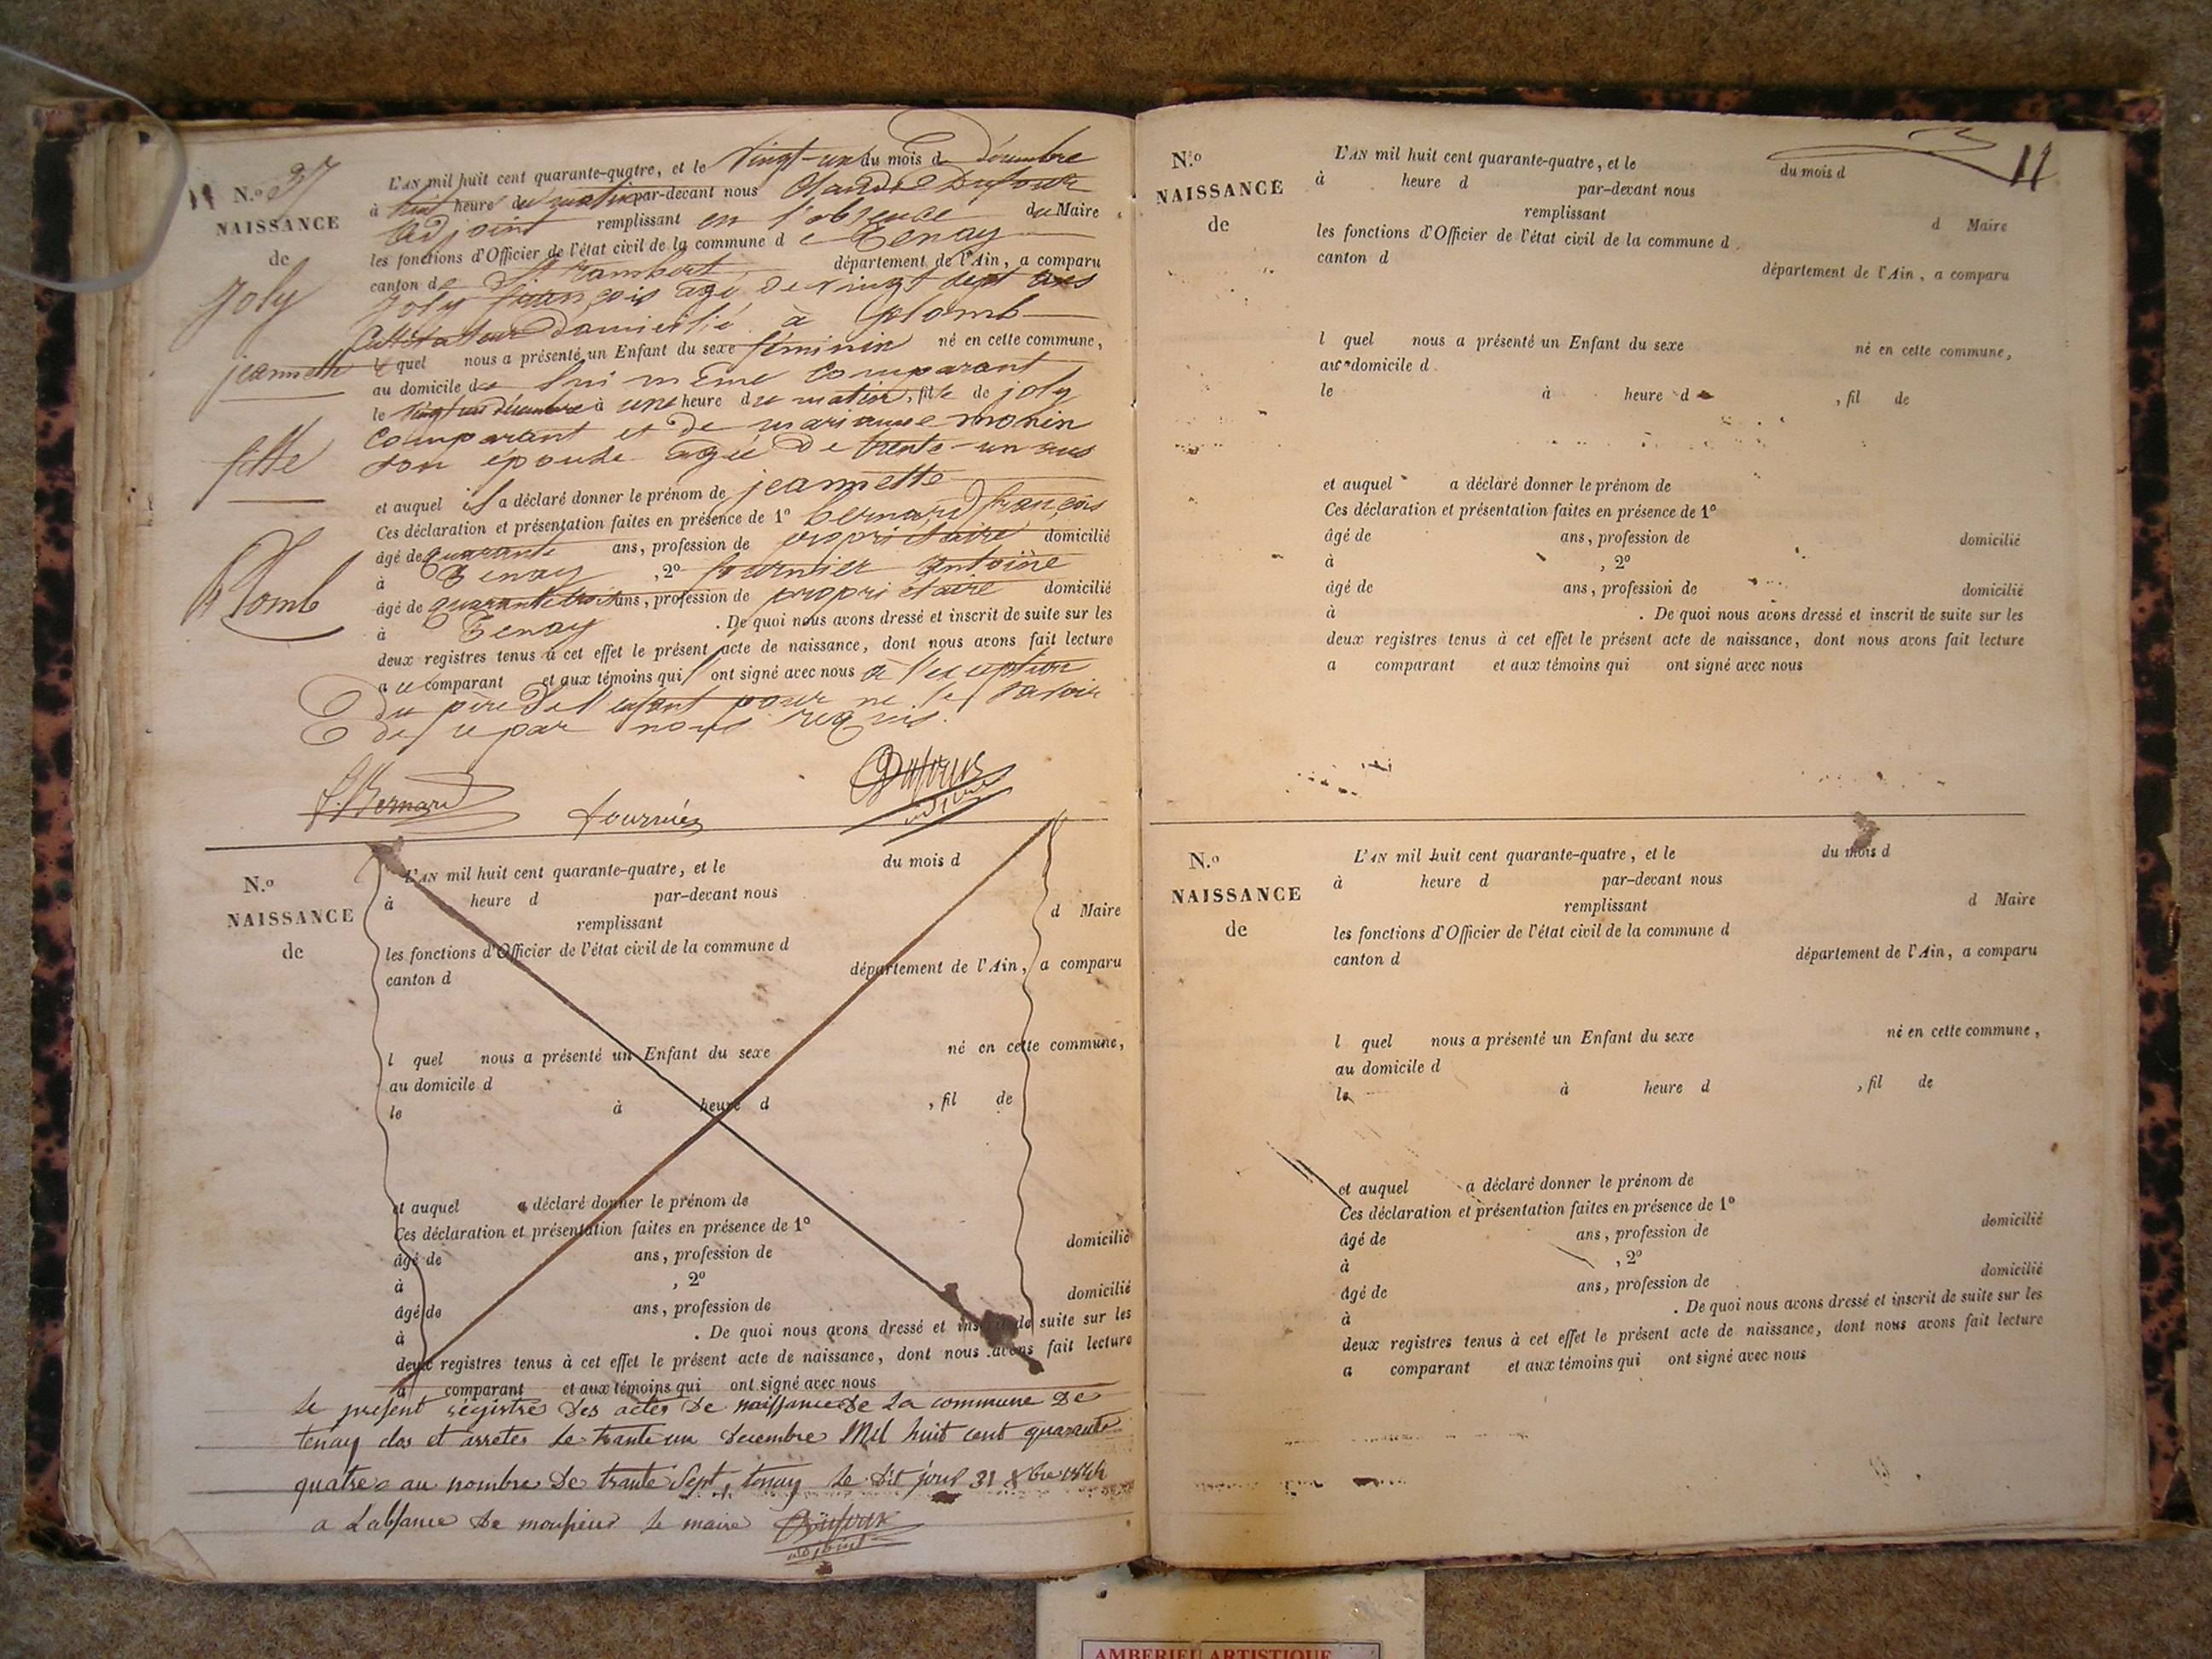 N.o 37
NAISSANCE
de
Joly
jeannette
fille
Plomb
L'AN mil huit cent quarante-quatre, et le Vingt-un du mois de décembre
à huit heure du matin par-devant nous Claude Dufour
adjoint remplissant en l'absence du Maire
les fonctions d'Officier de l'état civil de la commune de Tenay
canton de St rambert département de l'Ain, a comparu
Joly françois âgé de vingt sept ans
Cultivateur domicilié à plomb
le quel nous a présenté un Enfant du sexe féminin né en cette commune,
au domicile de lui même comparant
le vingt un décembre à une heure du matin, fille de joly
comparant et de marianne monin
son épouse agée de trente-un ans
et auquel il a déclaré donner le prénom de jeannette
Ces déclaration et présentation faites en présence de 1o bernard françois
âgé de quarante ans, profession de propriétaire domicilié
à Tenay, 2o fournier antoine
âgé de quarante trois ans, profession de propriétaire domicilié
à Tenay. De quoi nous avons dressé et inscrit de suite sur les
deux registres tenus à cet effet le présent acte de naissance, dont nous avons fait lecture
a ce comparant et aux témoins qui ont signé avec nous à l'exception
du père de l'enfant pour ne le savoir
de ce par nous requis.
f. Bernard fournier Dufour
adjoint
N.o
NAISSANCE
de
L'AN mil huit cent quarante-quatre, et le du mois d
à heure d par-devant nous
remplissant d Maire
les fonctions d'Officier de l'état civil de la commune d
canton d département de l'Ain, a comparu
l quel nous a présenté un Enfant du sexe né en cette commune,
au domicile d
le à heure d , fil de
et auquel a déclaré donner le prénom de
Ces déclaration et présentation faites en présence de 1o
âgé de ans, profession de domicilié
à , 2o
âgé de ans, profession de domicilié
à . De quoi nous avons dressé et inscrit de suite sur les
deux registres tenus à cet effet le présent acte de naissance, dont nous avons fait lecture
a comparant et aux témoins qui ont signé avec nous
Le present régistre des actes de naissance de La commune De
tenay clos et arretés le trante un decembre Mil huit cent quarante
quatre au nombre De trante Sept, tenay le dit jour 31 Xbre 1844
a Labsance de monsieur le maire Dufour
adjoint
11
N.o
NAISSANCE
de
L'AN mil huit cent quarante-quatre, et le du mois d
à heure d par-devant nous
remplissant d Maire
les fonctions d'Officier de l'état civil de la commune d
canton d département de l'Ain, a comparu
l quel nous a présenté un Enfant du sexe né en cette commune,
au domicile d
le à heure d , fil de
et auquel a déclaré donner le prénom de
Ces déclaration et présentation faites en présence de 1o
âgé de ans, profession de domicilié
à , 2o
âgé de ans, profession de domicilié
à . De quoi nous avons dressé et inscrit de suite sur les
deux registres tenus à cet effet le présent acte de naissance, dont nous avons fait lecture
a comparant et aux témoins qui ont signé avec nous
N.o
NAISSANCE
de
L'AN mil huit cent quarante-quatre, et le du mois d
à heure d par-devant nous
remplissant d Maire
les fonctions d'Officier de l'état civil de la commune d
canton d département de l'Ain, a comparu
l quel nous a présenté un Enfant du sexe né en cette commune,
au domicile d
le à heure d , fil de
et auquel a déclaré donner le prénom de
Ces déclaration et présentation faites en présence de 1o
âgé de ans, profession de domicilié
à , 2o
âgé de ans, profession de domicilié
à . De quoi nous avons dressé et inscrit de suite sur les
deux registres tenus à cet effet le présent acte de naissance, dont nous avons fait lecture
a comparant et aux témoins qui ont signé avec nous
AMBERIEU ARTISTIQUE